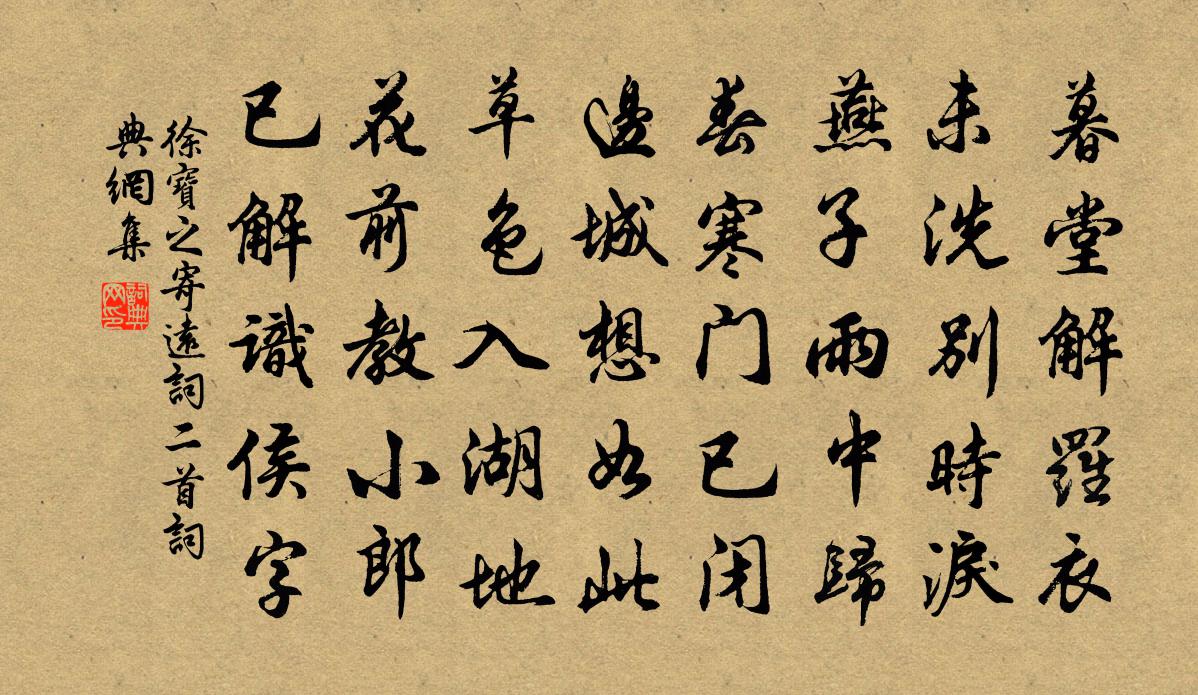 暮堂解羅衣
未洗別時淚
燕子雨中歸
春寒门已闭
邊城想如此
草色入湖地
花前教小郎
已解識侯字
徐寶之寄遠詞二首詞
典網集
詞典网印